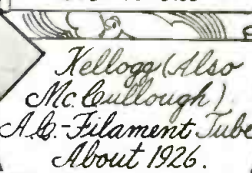 Kellogg (Also
Mc.Cullough)
A.C.-Filament Tube
About 1926.